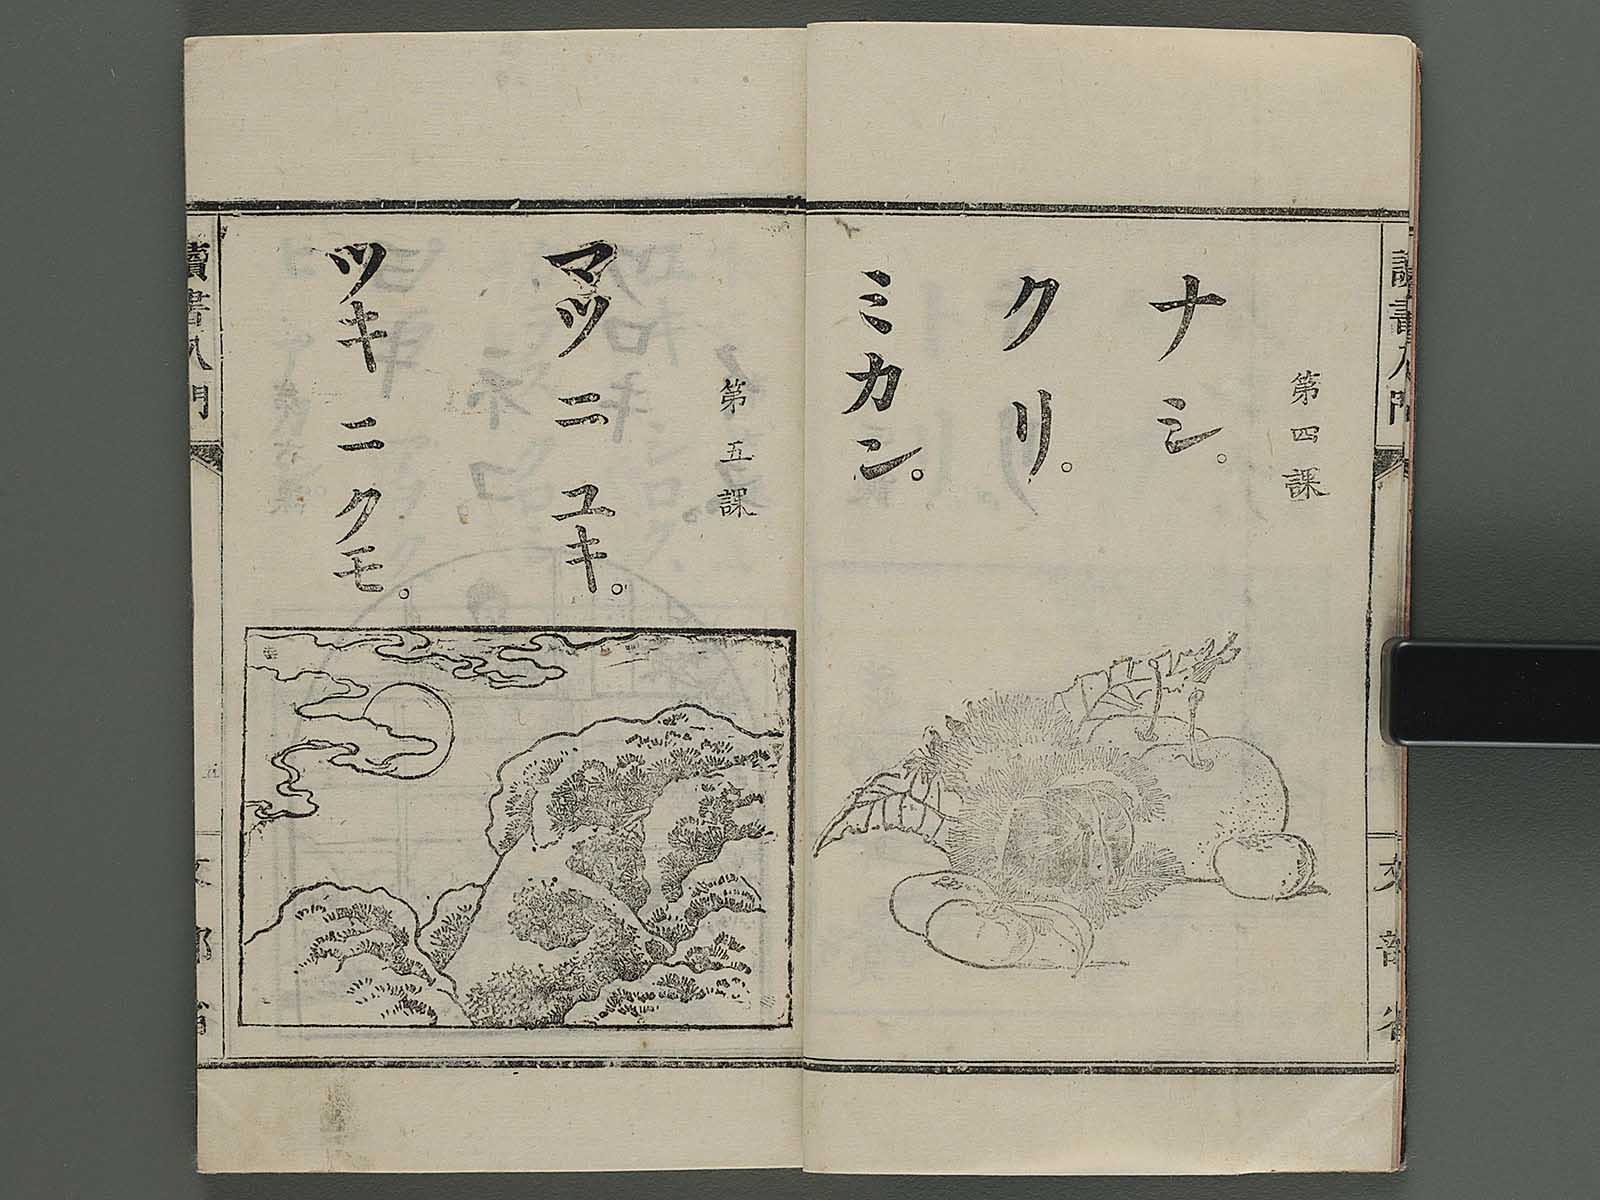 第四課
ナシ。
クリ。
ミカン。
第五課
マツ ニ ユキ。
ツキ ニ クモ。
讀書入門
文部省